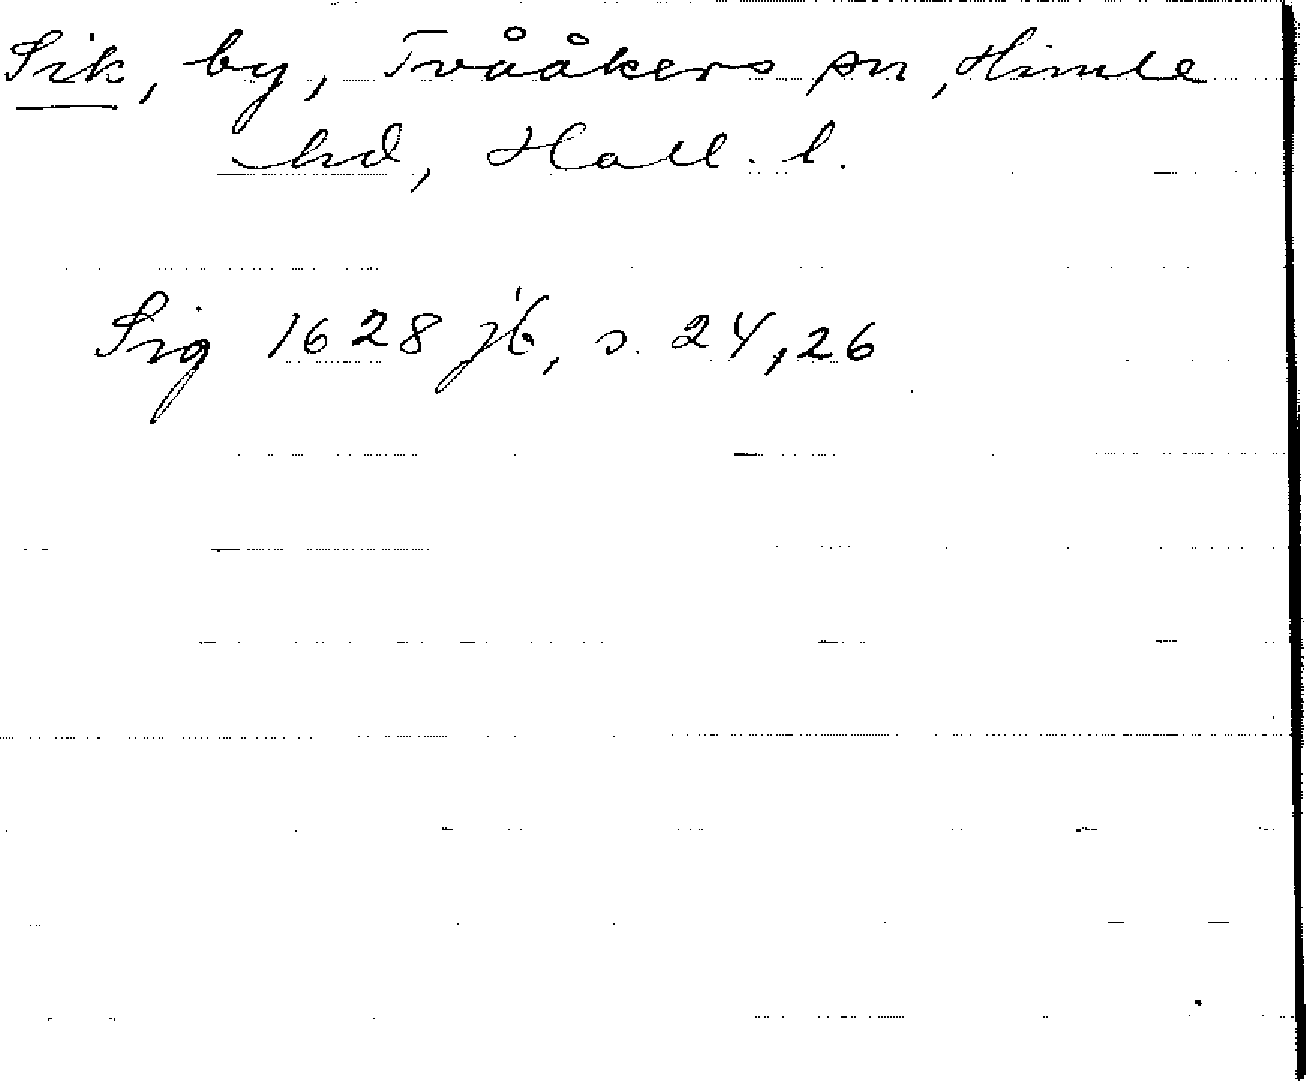 Sik, by, Tvååkers sn, Himle
hd, Hall. l.
Sig 1628 jb, s. 24, 26